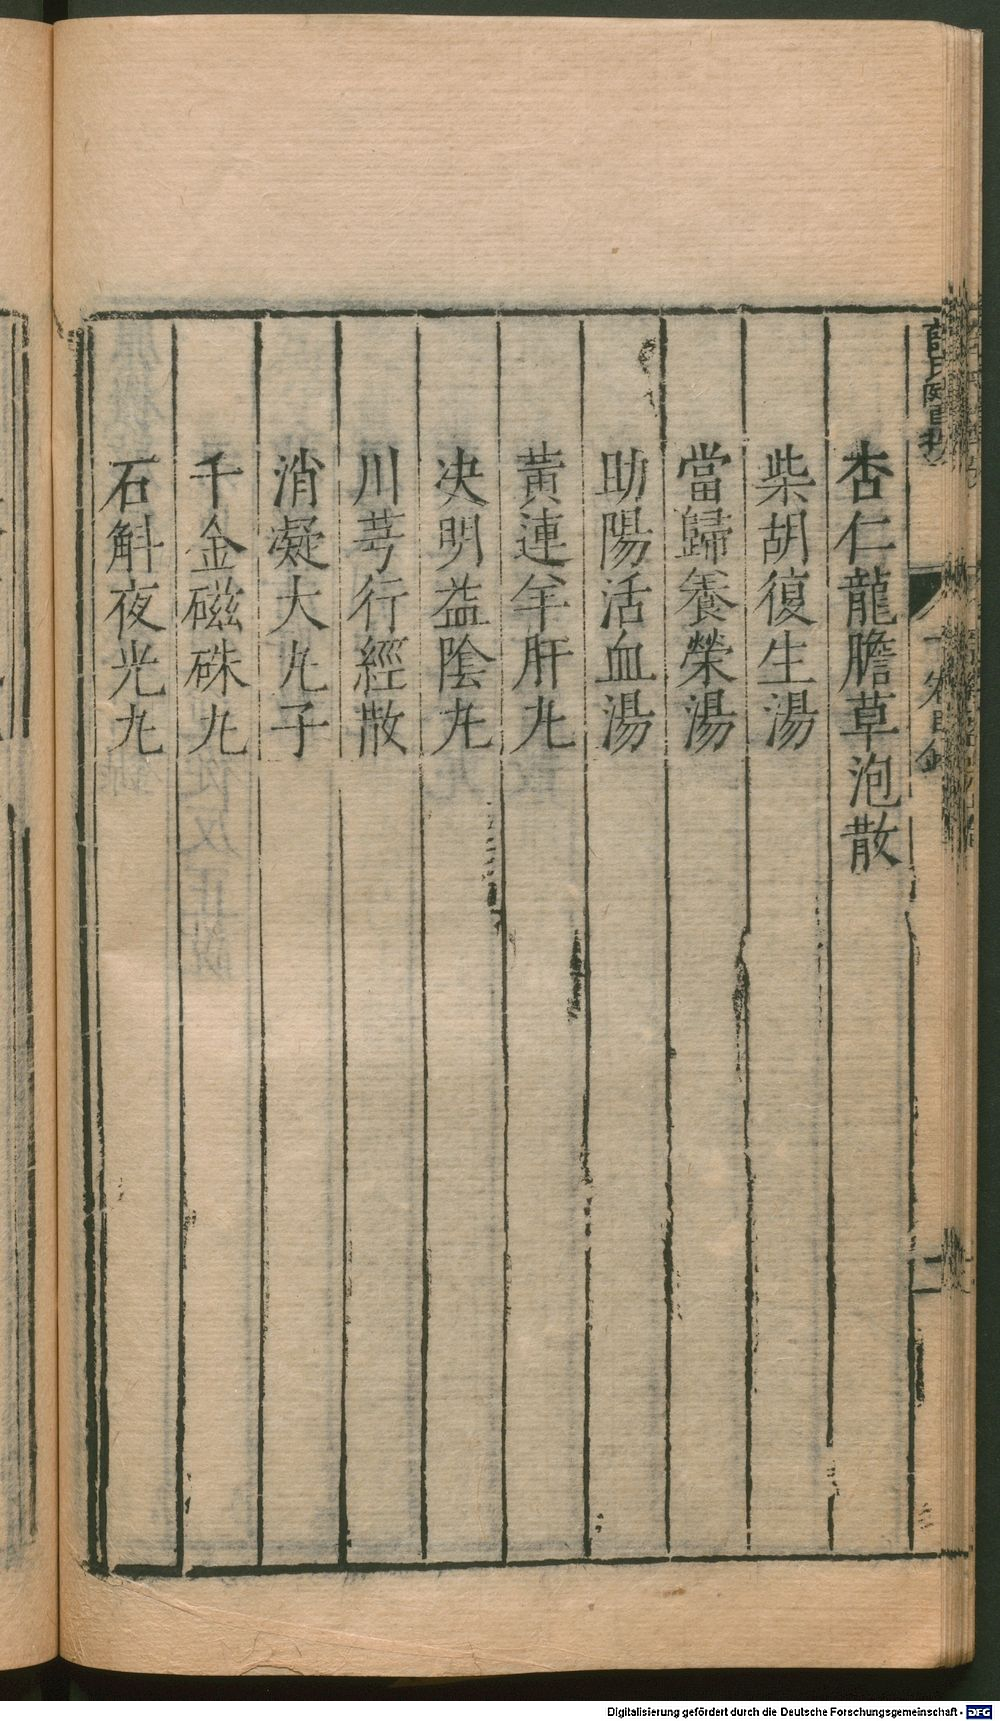 杏仁龍膽草泡散
柴胡復生湯
當歸養榮湯
助陽活血湯
黃連羊肝丸
决明益陰丸
川芎行經散
消凝大丸子
千金磁硃丸
石斛夜光丸
一卷目錄
二
Digitalisierung gefördert durch die Deutsche Forschungsgemeinschaft - DFG